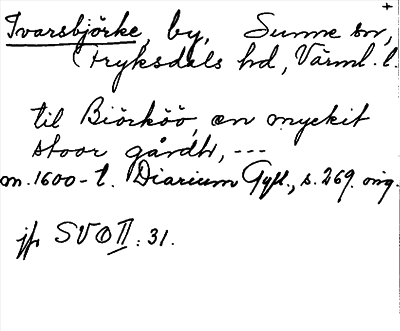 Ivarsbjörke, by, Sunne sn,
Fryksdals hd, Värml. l.
til Biörköö, en myckit
stoor gårdh, ---
m. 1600-t. Diarium Gyll., s. 269. orig.
jfr SVO II: 31.